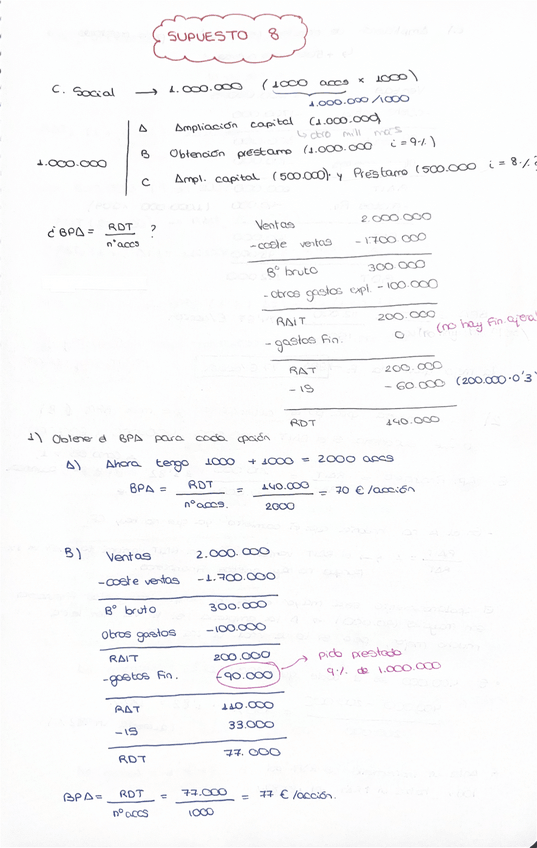 SUPUESTO 8
C. Social → 1.000.000 (1000 accs × 1000)
1.000.000/1000
1.000.000
A Ampliación capital (1.000.000)
↳ otro mill más
B Obtención préstamo (1.000.000 i = 9%)
C Ampl. capital (500.000) y Préstamo (500.000 i = 8%
¿BPA = RDT / nº accs ?
Ventas 2.000.000
-coste ventas -1700 000
Bº bruto 300.000
-otros gastos expl. -100.000
RAIT 200.000
-gastos Fin. 0 (no hay Fin. ajena)
RAT 200.000
-IS -60.000 (200.000·0'3
RDT 140.000
1) Obtener el BPA para cada opción
A) Ahora tengo 1000 + 1000 = 2000 accs
BPA = RDT / nº accs. = 140.000 / 2000 = 70 €/acción
B) Ventas 2.000.000
-coste ventas -1.700.000
Bº bruto 300.000
Otros gastos -100.000
RAIT 200.000
-gastos Fin. -90.000 → pido prestado
9% de 1.000.000
RAT 110.000
-IS 33.000
RDT 77.000
BPA = RDT / nº accs = 77.000 / 1000 = 77 €/acción.